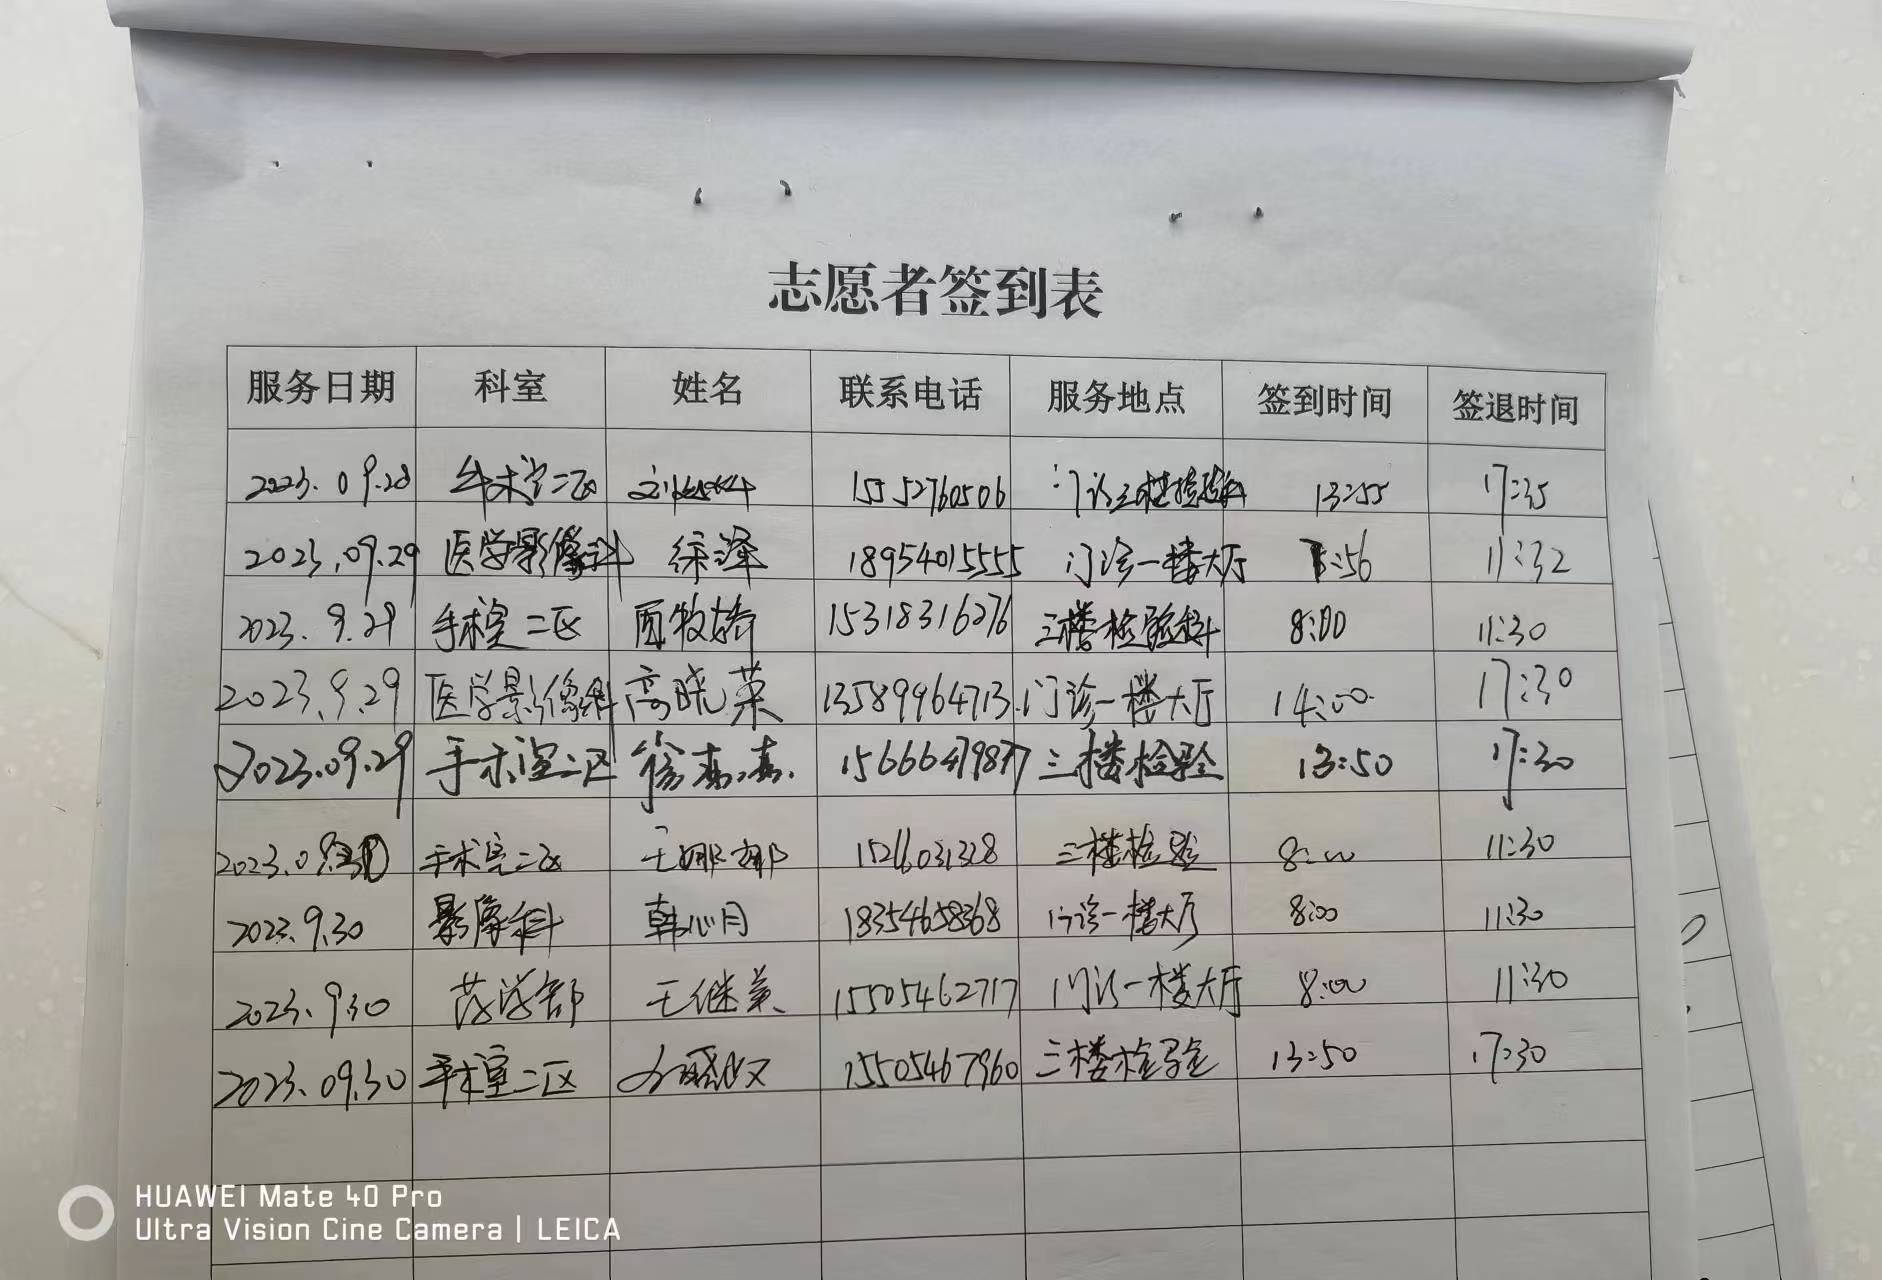 志愿者签到表
服务日期 科室 姓名 联系电话 服务地点 签到时间 签退时间
2023.09.28 手术室二区 15552760506 门诊三楼检验科 13:55 17:35
2023.09.29 医学影像科 徐泽 18954015555 门诊一楼大厅 :56 11:32
2023.9.29 手术室二区 15318316276 三楼检验科 8:00 11:30
2023.9.29 医学影像科 高晓荣 13589964713 门诊一楼大厅 14:00 17:30
2023.09.29 手术室二区 徐 15666479877 三楼检验 13:50 17:30
2023.09.30 手术室二区 王娜娜 三楼检验 8:00 11:30
2023.9.30 影像科 韩心月 18354658368 门诊一楼大厅 8:00 11:30
2023.9.30 药学部 王继英 15505462717 门诊一楼大厅 8:00 11:30
2023.09.30 手术室二区 15505467960 三楼检验 13:50 17:30
HUAWEI Mate 40 Pro
Ultra Vision Cine Camera | LEICA